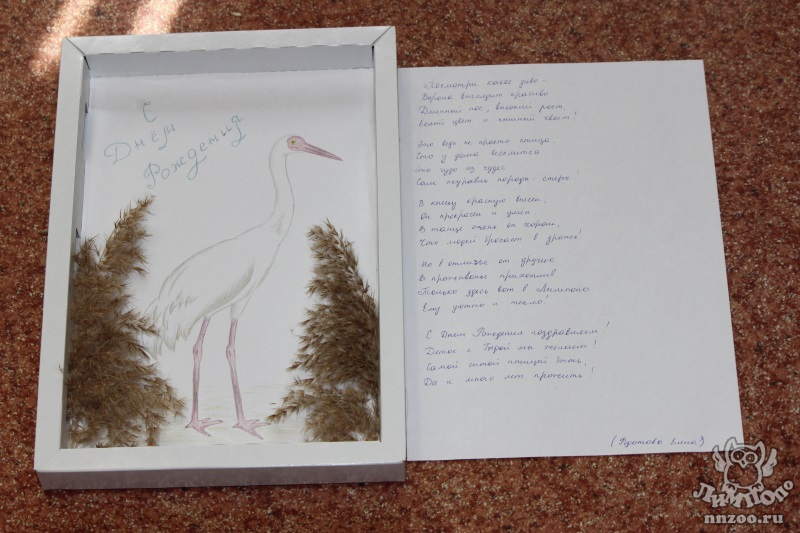 С
Днём
Рождения
Посмотри какое диво -
Ворона выглядит красиво
Длинный нос, высокий рост,
Белый цвет и пышный хвост!
Это ведь не просто птица
Что у дома веселится
Это чудо из чудес
Сам журавль породы стерх!
В книгу красную внесён,
Он прекрасен и умён
В танце очень он хорош,
Что людей бросает в дрожь!
Но в отличие от других
В проживанье прихотлив
Только здесь вот в Лимпопо
Ему уютно и тепло!
С Днем Рождения поздравляем!
Деток с Кырой мы желаем!
Самой сытой птицей быть,
Да и много лет прожить!
Лимпопо
nnzoo.ru